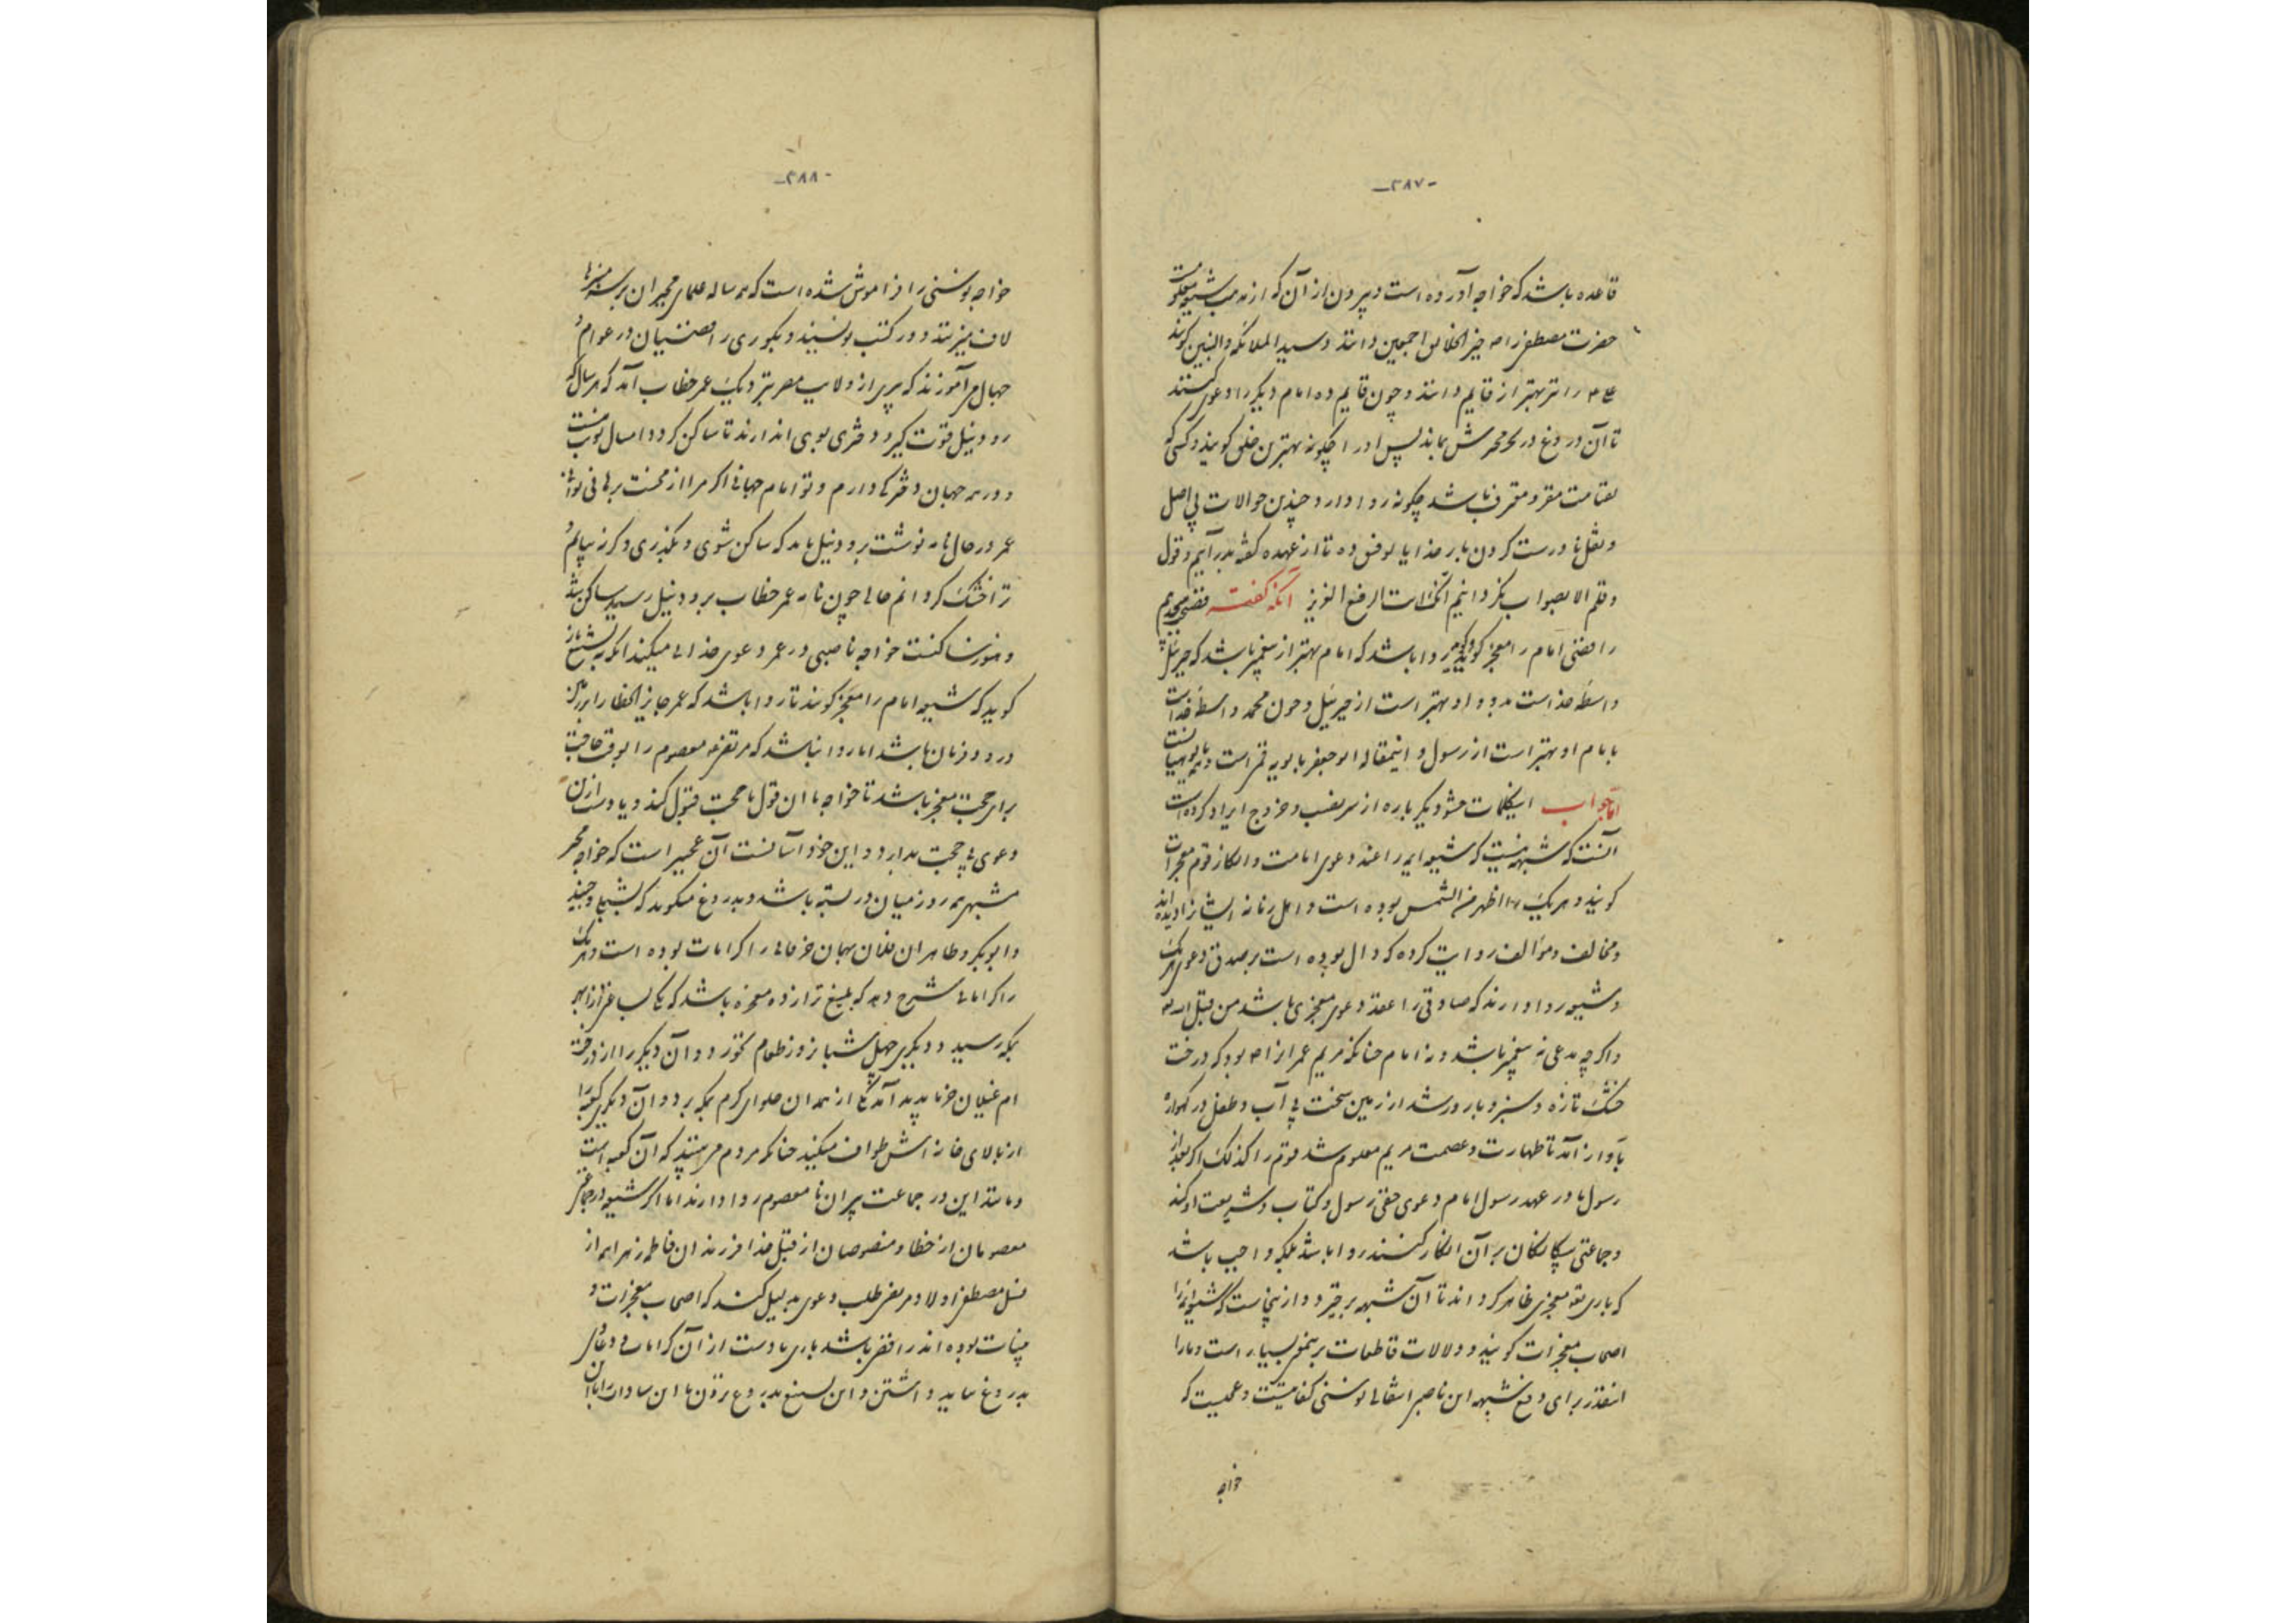 -۲۸۷-
قاعده باشد که خواجه آورده است و بیرون از آن که از مذهب شیعه معلومست
حضرت مصطفی را صه خیر الخلائق اجمعین دانند و سید الملائکه والنبین گویند
و چون قایم و ده امام دیگر را دعوی کنند
تا آن دروغ در بماند پس او را چگونه بهترین خلق گویند و کسی که
مقر و معترف باشد چگونه روا دارد چندین حوالات بی اصل
و نقل نادرست کردن بار خدایا توفیق ده تا از عهده گفته بدر آییم و قول
و قلم الا بصواب نگردانیم انک انت آنگه گفته
رافضی امام را معجز گوید روا باشد که امام بهتر از پیغمبر باشد که جبرئیل
واسطه خداست بدو و او بهتر است از جبرئیل و چون محمد واسطه خداست
بامام او بهتر است از رسول و اینمقاله ابو جعفر بابویه قمی است
اما جواب اینکلمات حشو دیگر باره از سر تعصب و خروج ایراد کرده است
آنست که شبهه نیست که شیعه ایمه را عند دعوی امامت و انکار قوم معجزات
گویند و هر یک اظهر من الشمس بوده است و اهل زمانه ایشان دیده اند
و مخالف و مؤالف روایت کرده که دال بوده است بر صدق دعوی هر یک
و شیعه روا دارند که صادقی را عند دعوی معجزی باشد من قبل الله
و اگر چه مدعی نه پیغمبر باشد و نه امام چنانکه مریم عمران را بود که درخت
خشک تازه و سبز و بارور شد از زمین سخت بی آب و طفل در گهواره
بآواز آمد تا طهارت و عصمت مریم معلوم شد قوم را کذلک اگر بعد از
رسول یا در عهد رسول امام دعوی حقی رسول و کتاب و شریعت او کند
و جماعتی بیگانگان بر آن انکار کنند روا باشد بلکه واجب باشد
که باری تع معجزی ظاهر گرداند تا آن شبهه برخیزد و از اینجاست که شیعه ایمه را
اصحاب معجزات گویند و دلالات قاطعات برینمعنی بسیار است و ما را
اینقدر برای دفع شبهه این ناصبی انتقالی نوسنی کفایتست و عجبست که
خواجه
-۲۸۸-
خواجه نوسنی را فراموش شده است که همه ساله علمای مجبران بر سر منبرها
لاف میزنند و در کتب نویسند و بکوری رافضیان در عوام و
جهال می آموزند که پیری از ولایت مصر بنزدیک عمر خطاب آمد که هر سال که
رود نیل قوت گیرد دختری بوی اندازند تا ساکن گردد امسال نوبت منست
و در همه جهان دختری دارم و تو امام جهانی اگر مرا از محنت برهانی توانی
عمر در حال نامه نوشت برود نیل باید که ساکن شوی و نگذری و گر نه بیایم و
ترا خشک گردانم حالی چون نامه عمر خطاب برود نیل رسید ساکن شد
و هنوز ساکنست خواجه ناصبی در عمر دعوی خدایی میکند آنگه
گوید که شیعه امام را معجز گویند تا روا باشد که عمر جایز الخطا را
رود فرمان باشد اما روا نباشد که مرتضی معصوم را بوقت حاجت
برای حجت معجز باشد تا خواجه یا آن قول با حجت قبول کند و یا دست ازین
دعوی بی حجت بدارد و این خود آسانست آن عجبتر است که خواجه مجبر
مشبهی همه روز میان در بسته باشد و بدروغ میگوید که شبلی و جنید
و ابو بکر و طاهران فلان بهمان خرقانی را کرامات بوده است و هر یک
را کراماتی شرح دهد که بلیغ تر از ده معجزه باشد که
بمکه رسید و دیگری چهل شبانروز طعام نخورد و آن دیگر را از درخت
ام غیلان خرما پدید آمد از همدان حلوای گرم بمکه برد و آن دیگر کعبه را
از بالای خانه اش طواف میکند چنانکه مردم می بینند که آن کعبه است
و مانند این در جماعت پیران نا معصوم روا دارند اما اگر شیعه در جماعتی
معصومان از خطا و منصوصان از قبل خدا فرزندان فاطمه زهرا هم از
نسل مصطفی اولاد مرتضی طلب دعوی بدلیل کنند که اصحاب معجزات و
بینات بوده اند رافضی باشد باری یا دست از آن کرامات و دعاوی
بدروغ بباید داشتن و این تشنیع بدروغ نزدن یا این سادات را با آن